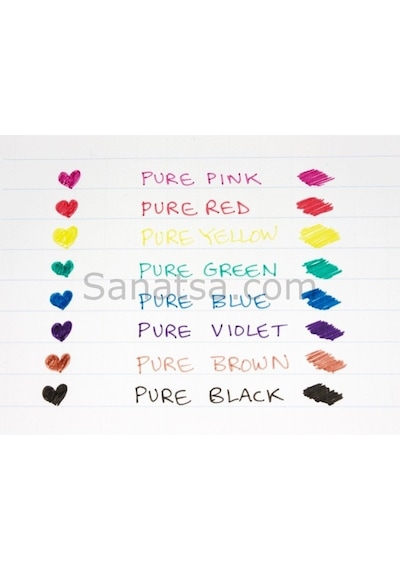 PURE PINK
PURE RED
PURE YELLOW
PURE GREEN
Sanatsa.com
PURE BLUE
PURE VIOLET
PURE BROWN
PURE BLACK